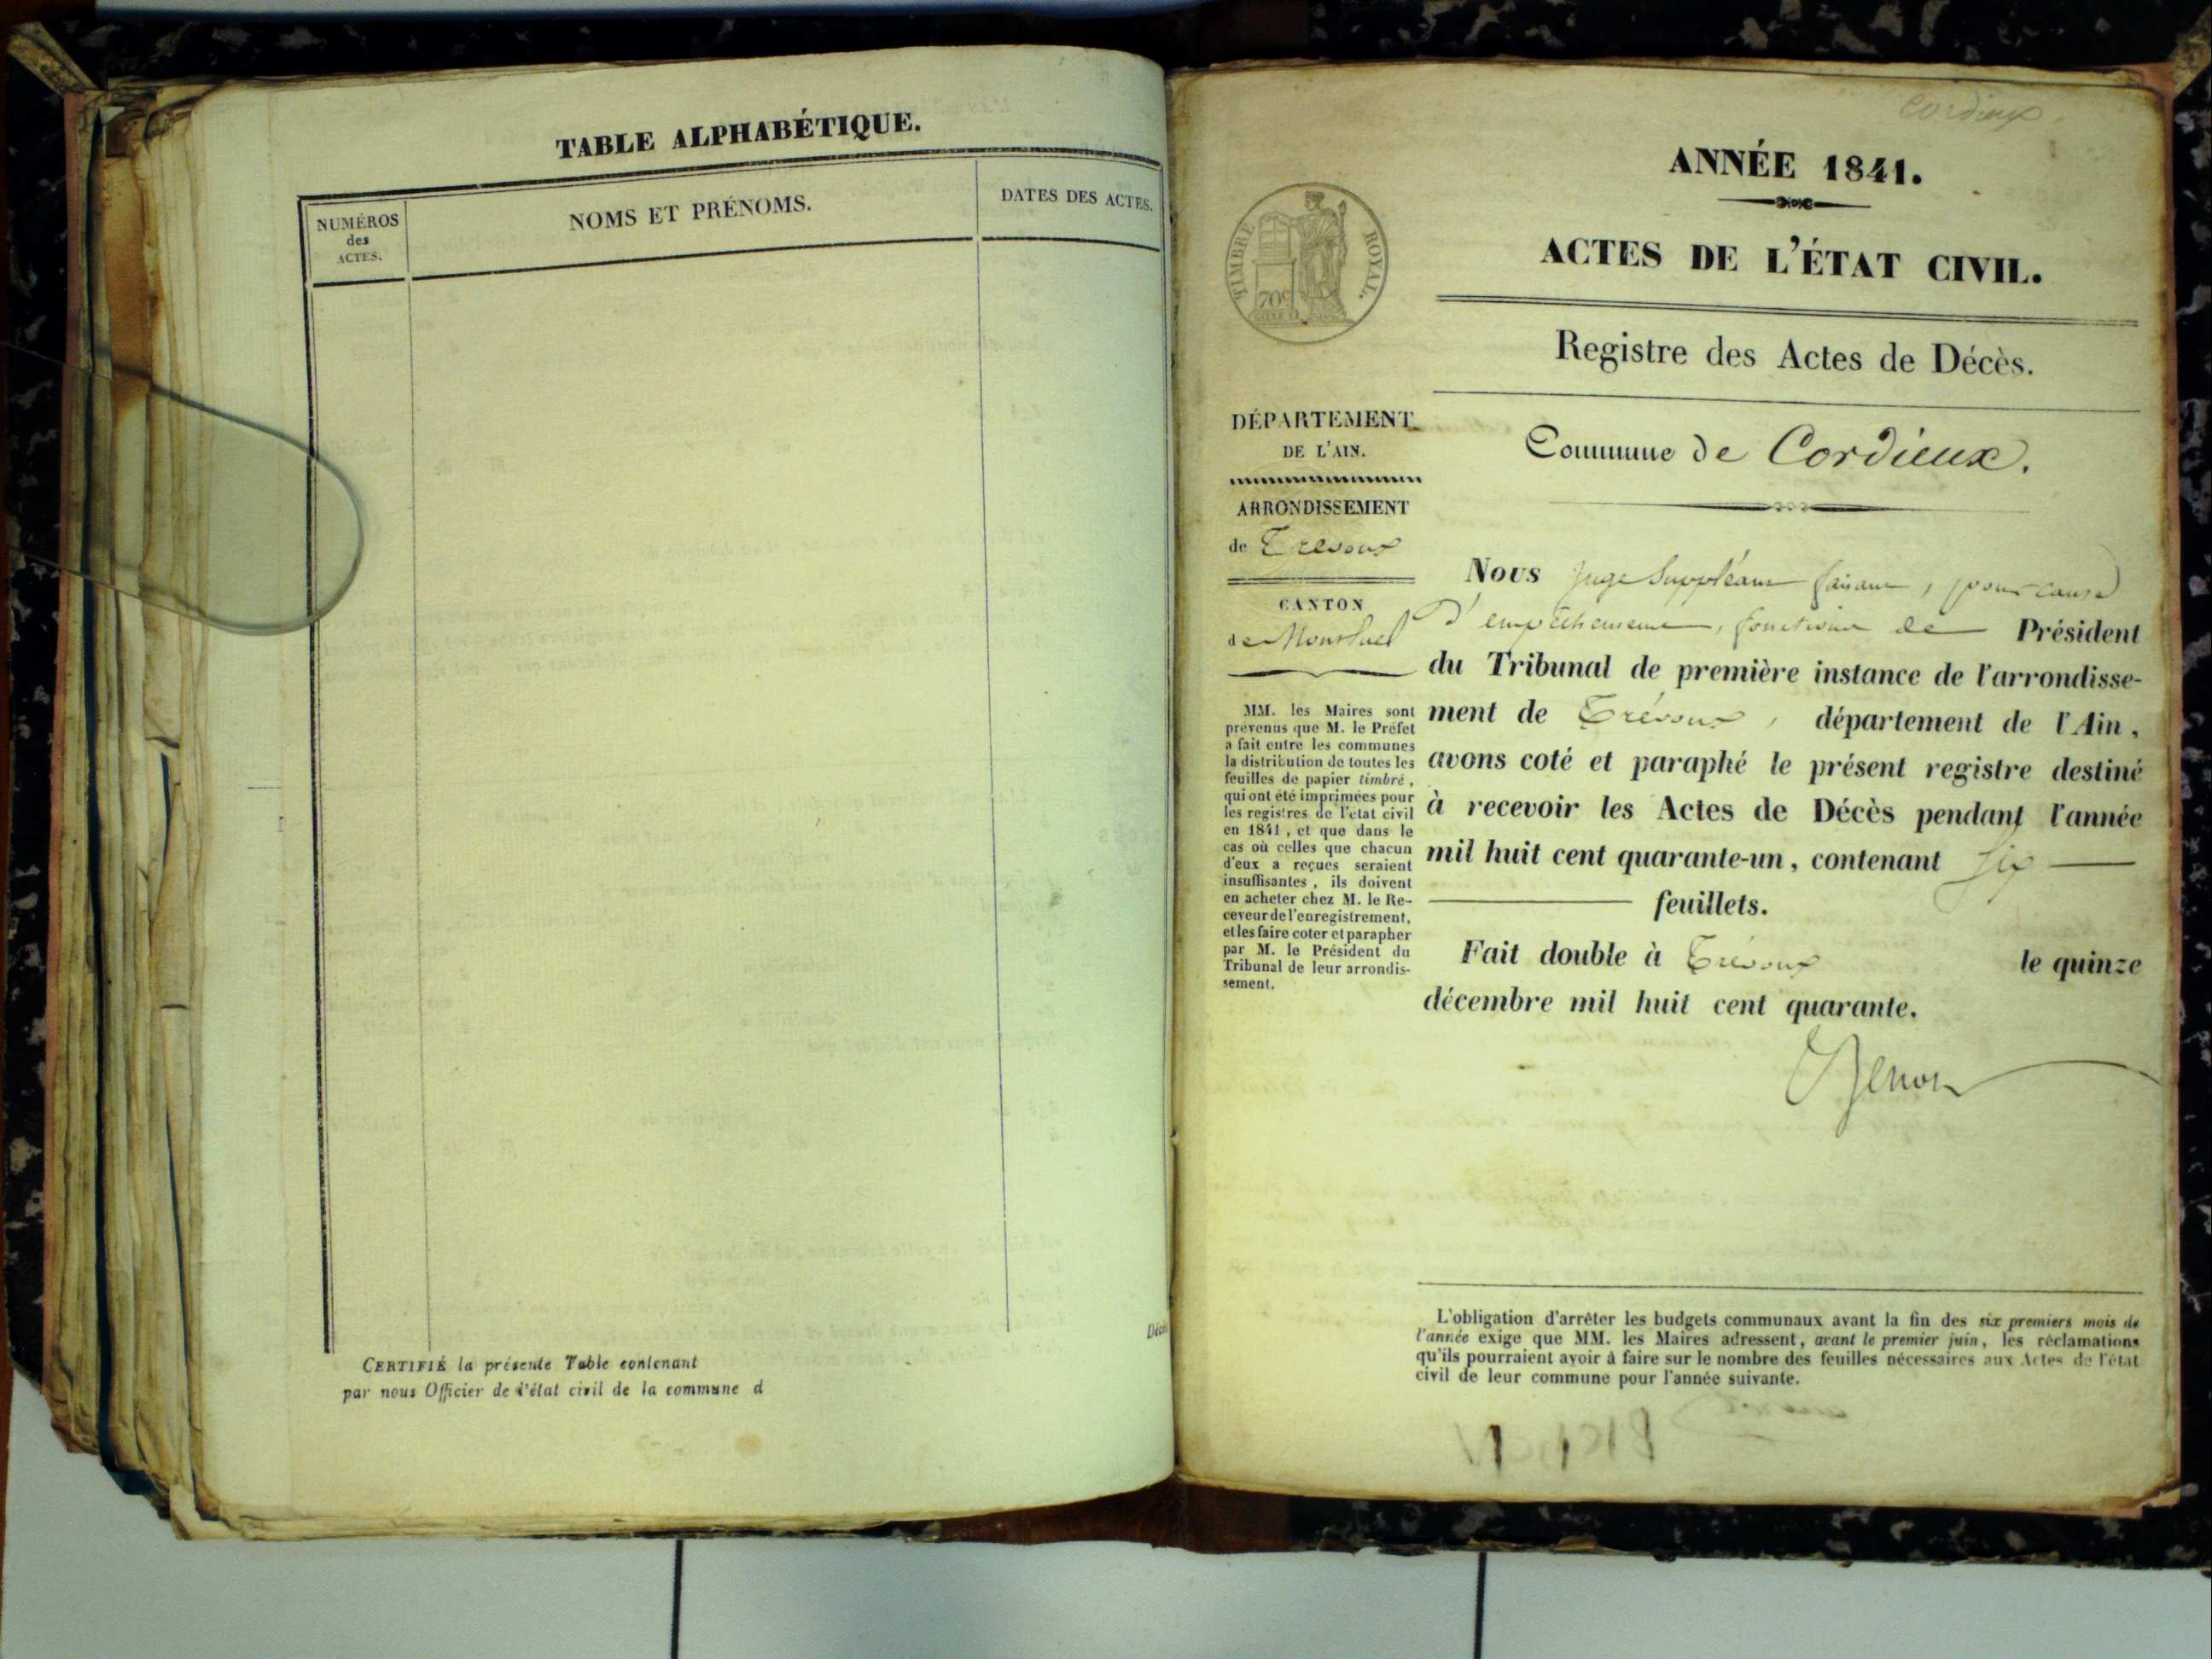 TABLE ALPHABÉTIQUE.
NUMÉROS
des
ACTES.
NOMS ET PRÉNOMS.
DATES DES ACTES.
CERTIFIÉ la présente Table contenant
par nous Officier de l'état civil de la commune d
Cordieux
TIMBRE ROYAL.
70c
ANNÉE 1841.
ACTES DE L'ÉTAT CIVIL.
Registre des Actes de Décès.
DÉPARTEMENT
DE L'AIN.
ARRONDISSEMENT
de Trévoux
CANTON
de Montluel
MM. les Maires sont
prévenus que M. le Préfet
a fait entre les communes
la distribution de toutes les
feuilles de papier timbré,
qui ont été imprimées pour
les registres de l'état civil
en 1841, et que dans le
cas où celles que chacun
d'eux a reçues seraient
insuffisantes, ils doivent
en acheter chez M. le Re-
ceveur de l'enregistrement,
et les faire coter et parapher
par M. le Président du
Tribunal de leur arrondis-
sement.
Commune de Cordieux.
Nous Juge Suppléant faisant, pour cause
d'empêchement, fonctions de Président
du Tribunal de première instance de l'arrondisse-
ment de Trévoux, département de l'Ain,
avons coté et paraphé le présent registre destiné
à recevoir les Actes de Décès pendant l'année
mil huit cent quarante-un, contenant six
feuillets.
Fait double à Trévoux le quinze
décembre mil huit cent quarante.
L'obligation d'arrêter les budgets communaux avant la fin des six premiers mois de
l'année exige que MM. les Maires adressent, avant le premier juin, les réclamations
qu'ils pourraient avoir à faire sur le nombre des feuilles nécessaires aux Actes de l'état
civil de leur commune pour l'année suivante.